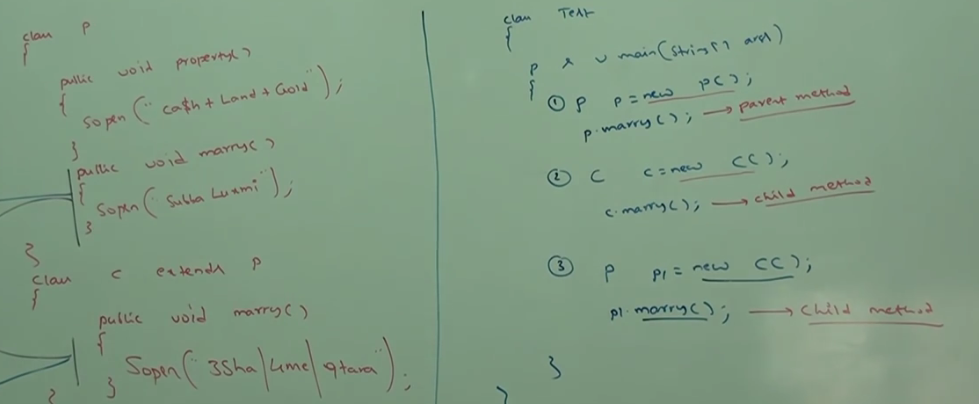 class P
{
public void property()
{
Sopln("cash + Land + Gold");
}
public void marry()
{
Sopln("Subba Luxmi");
}
}
class C extends P
{
public void marry()
{
Sopln("3Sha|4me|9tara");
}
}
class Test
{
p s v main(String[] args)
{
① P p = new P();
p.marry(); → parent method
② C c = new C();
c.marry(); → child method
③ P p1 = new C();
p1.marry(); → child method
}
}